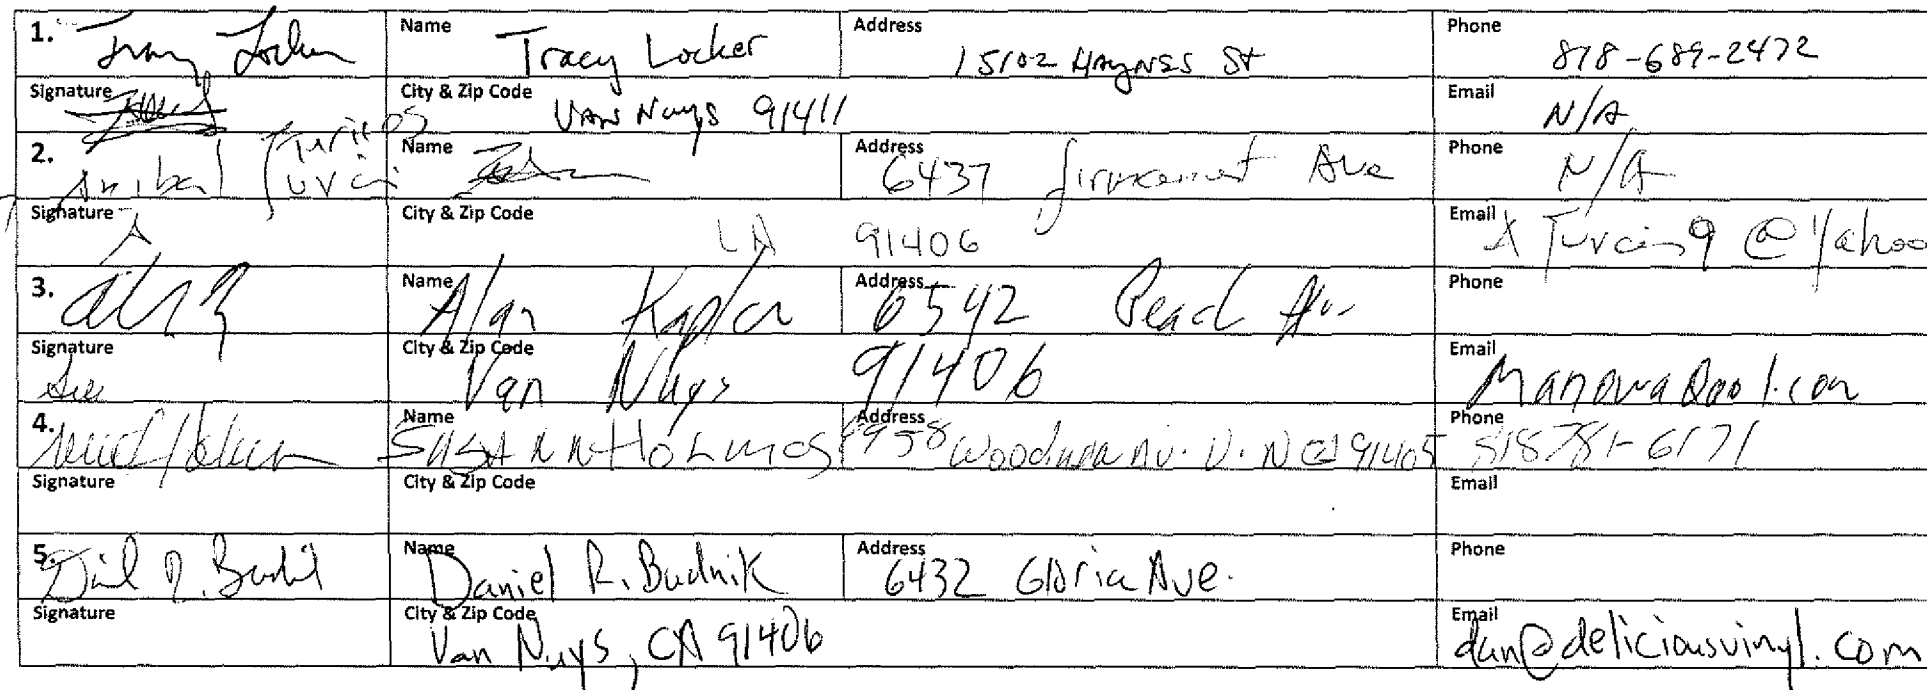 1. Tracy Locker Name Tracy Locker Address 15102 Haynes St Phone 818-689-2472
Signature City & Zip Code Van Nuys 91411 Email N/A
2. Anibal Turcios Name Address 6437 Ave Phone N/A
Signature City & Zip Code LA 91406 Email @Yahoo
3. Name Alan Kaplan Address 6542 Peach Av Phone
Signature City & Zip Code Van Nuys 91406 Email
4. Name SUSANN HOLMES Address Woodman Av. V. N Ca 91405 Phone 818781-6171
Signature City & Zip Code Email
5. Name Daniel R. Budnik Address 6432 Gloria Ave. Phone
Signature City & Zip Code Van Nuys, CA 91406 Email dan@deliciousvinyl.com